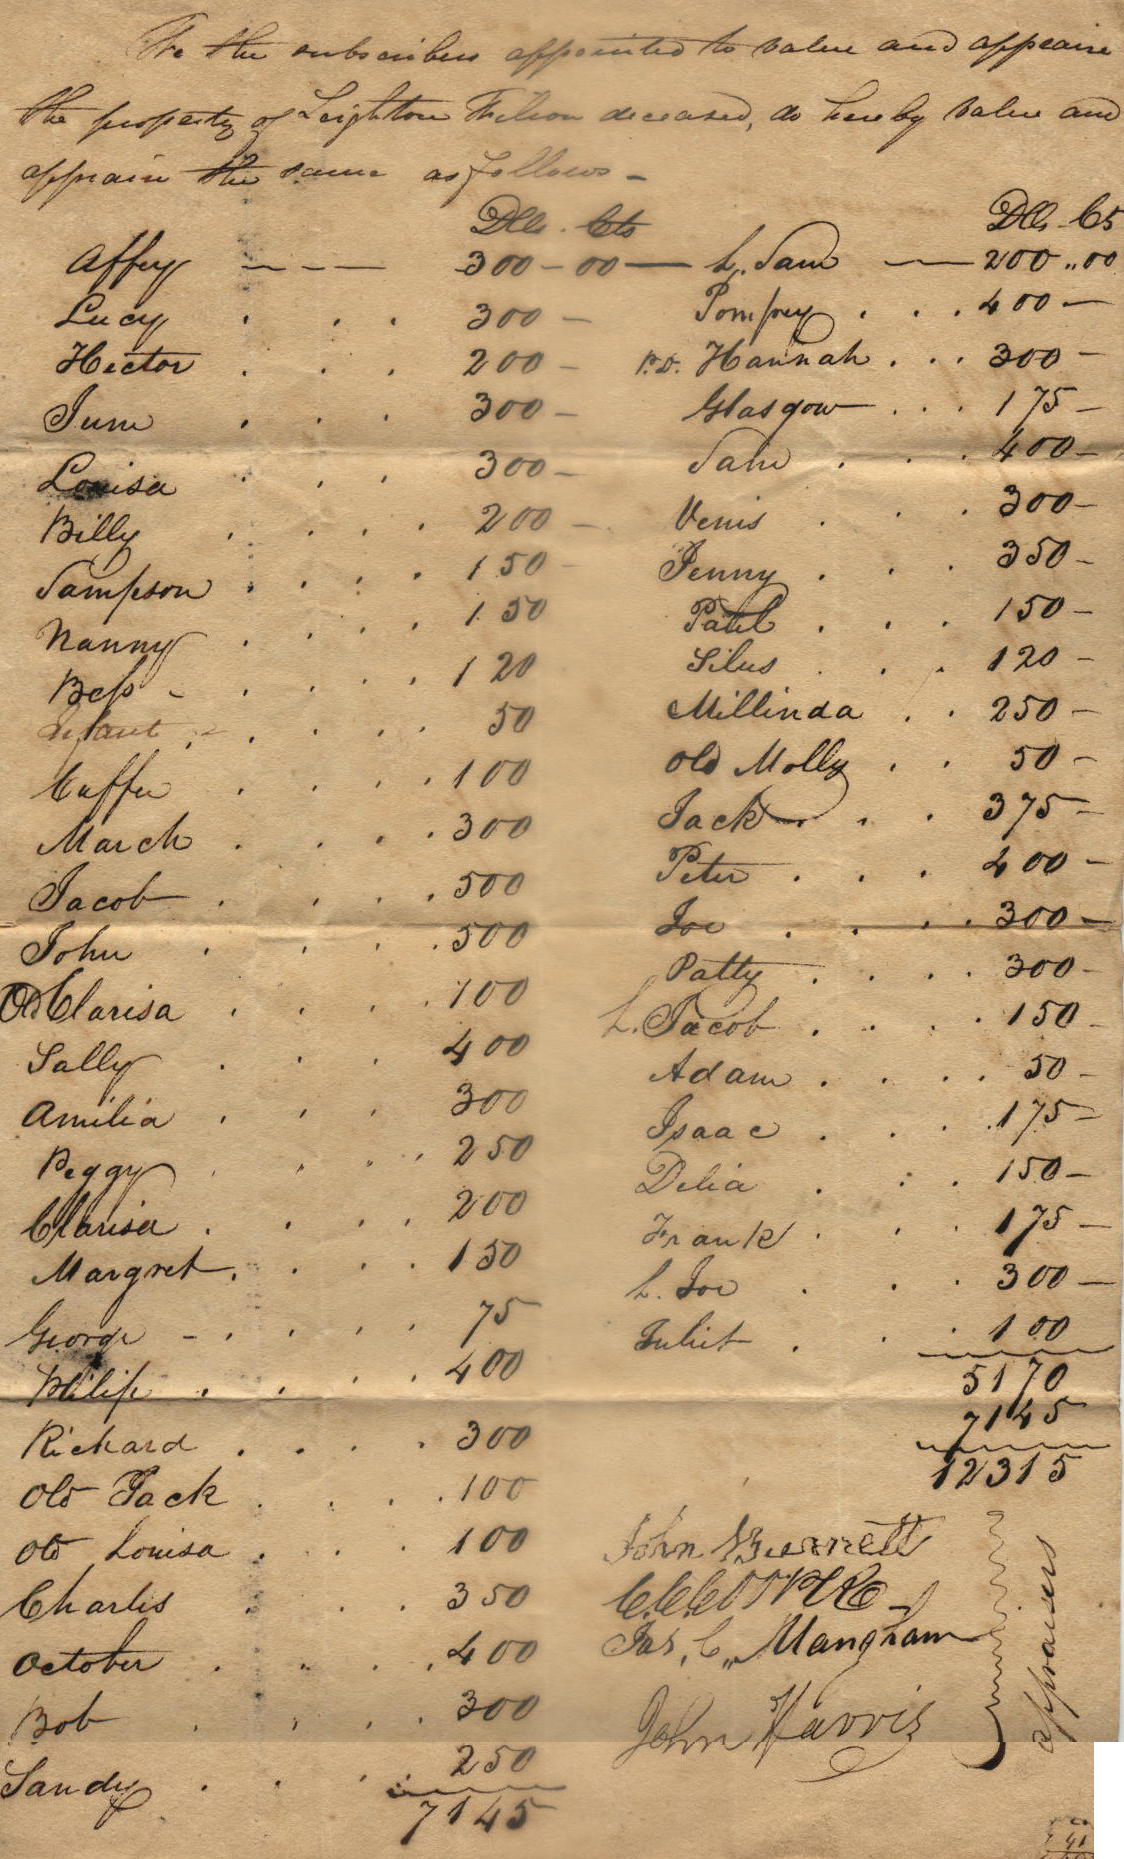 We the subscribers appointed to value and appraise
the property of Leighton Wilson deceased, do hereby value and
appraise the same as follows -
Dlls. Cts
Affey - - - - 300 - 00
Lucy . . . 300 -
Hector . . . 200 -
June . . . 300 -
Louisa . . . 300 -
Billy . . . . 200 -
Sampson . . . . 150 -
Nanny . . . . 150
Bess - . . . . 120
Infant . - . . . . 50
Cuffee . . . . 100
March . . . . 300
Jacob . . . . 500
John . . . . 500
Old Clarisa . . . . 100
Sally . . . 400
Amilia . . . 300
Peggy . . . . 250
Clarisa . . . . 200
Margret . . . . 150
George - . . . . 75
Philip . . . . 400
Richard . . . . 300
Old Jack . . . . 100
Old Louisa . . . 100
Charles . . . 350
October . . . . 400
Bob . . . . 300
Sandy . . . . 250
7145
Dlls. Cts
L. Sam — 200 .. 00
Pompey . . . 400 -
P.D. Hannah . . . 300 -
Glasgow . . . 175 -
Sam . . . 400 -
Venis . . . 300 -
Jenny . . . 350 -
Paul . . . 150 -
Silus . . . 120 -
Millinda . . 250 -
Old Molly . . 50 -
Jack . . . 375 -
Peter . . . 400 -
Joe . . . . 300 -
Patty . . . . 300 -
L. Jacob . . . . 150 -
Adam . . . . 50 -
Isaac . . . . 175 -
Delia . . . 150 -
Frank . . . 175 -
L. Joe . . . 300 -
Juliet . . . 100
5170
7145
12315
John Burnett
Jas, C,, Mangham
John Harris
appraisers